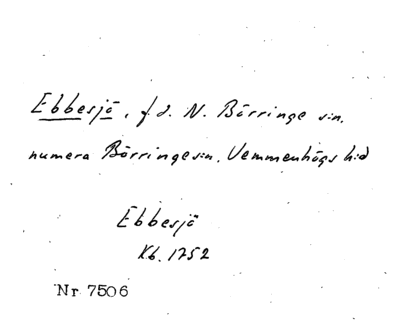 Ebbesjö, f.d. N. Börringe s:n.
numera Börringe s:n, Vemmenhögs h:d
Ebbesjö
Kb. 1752
Nr 7506